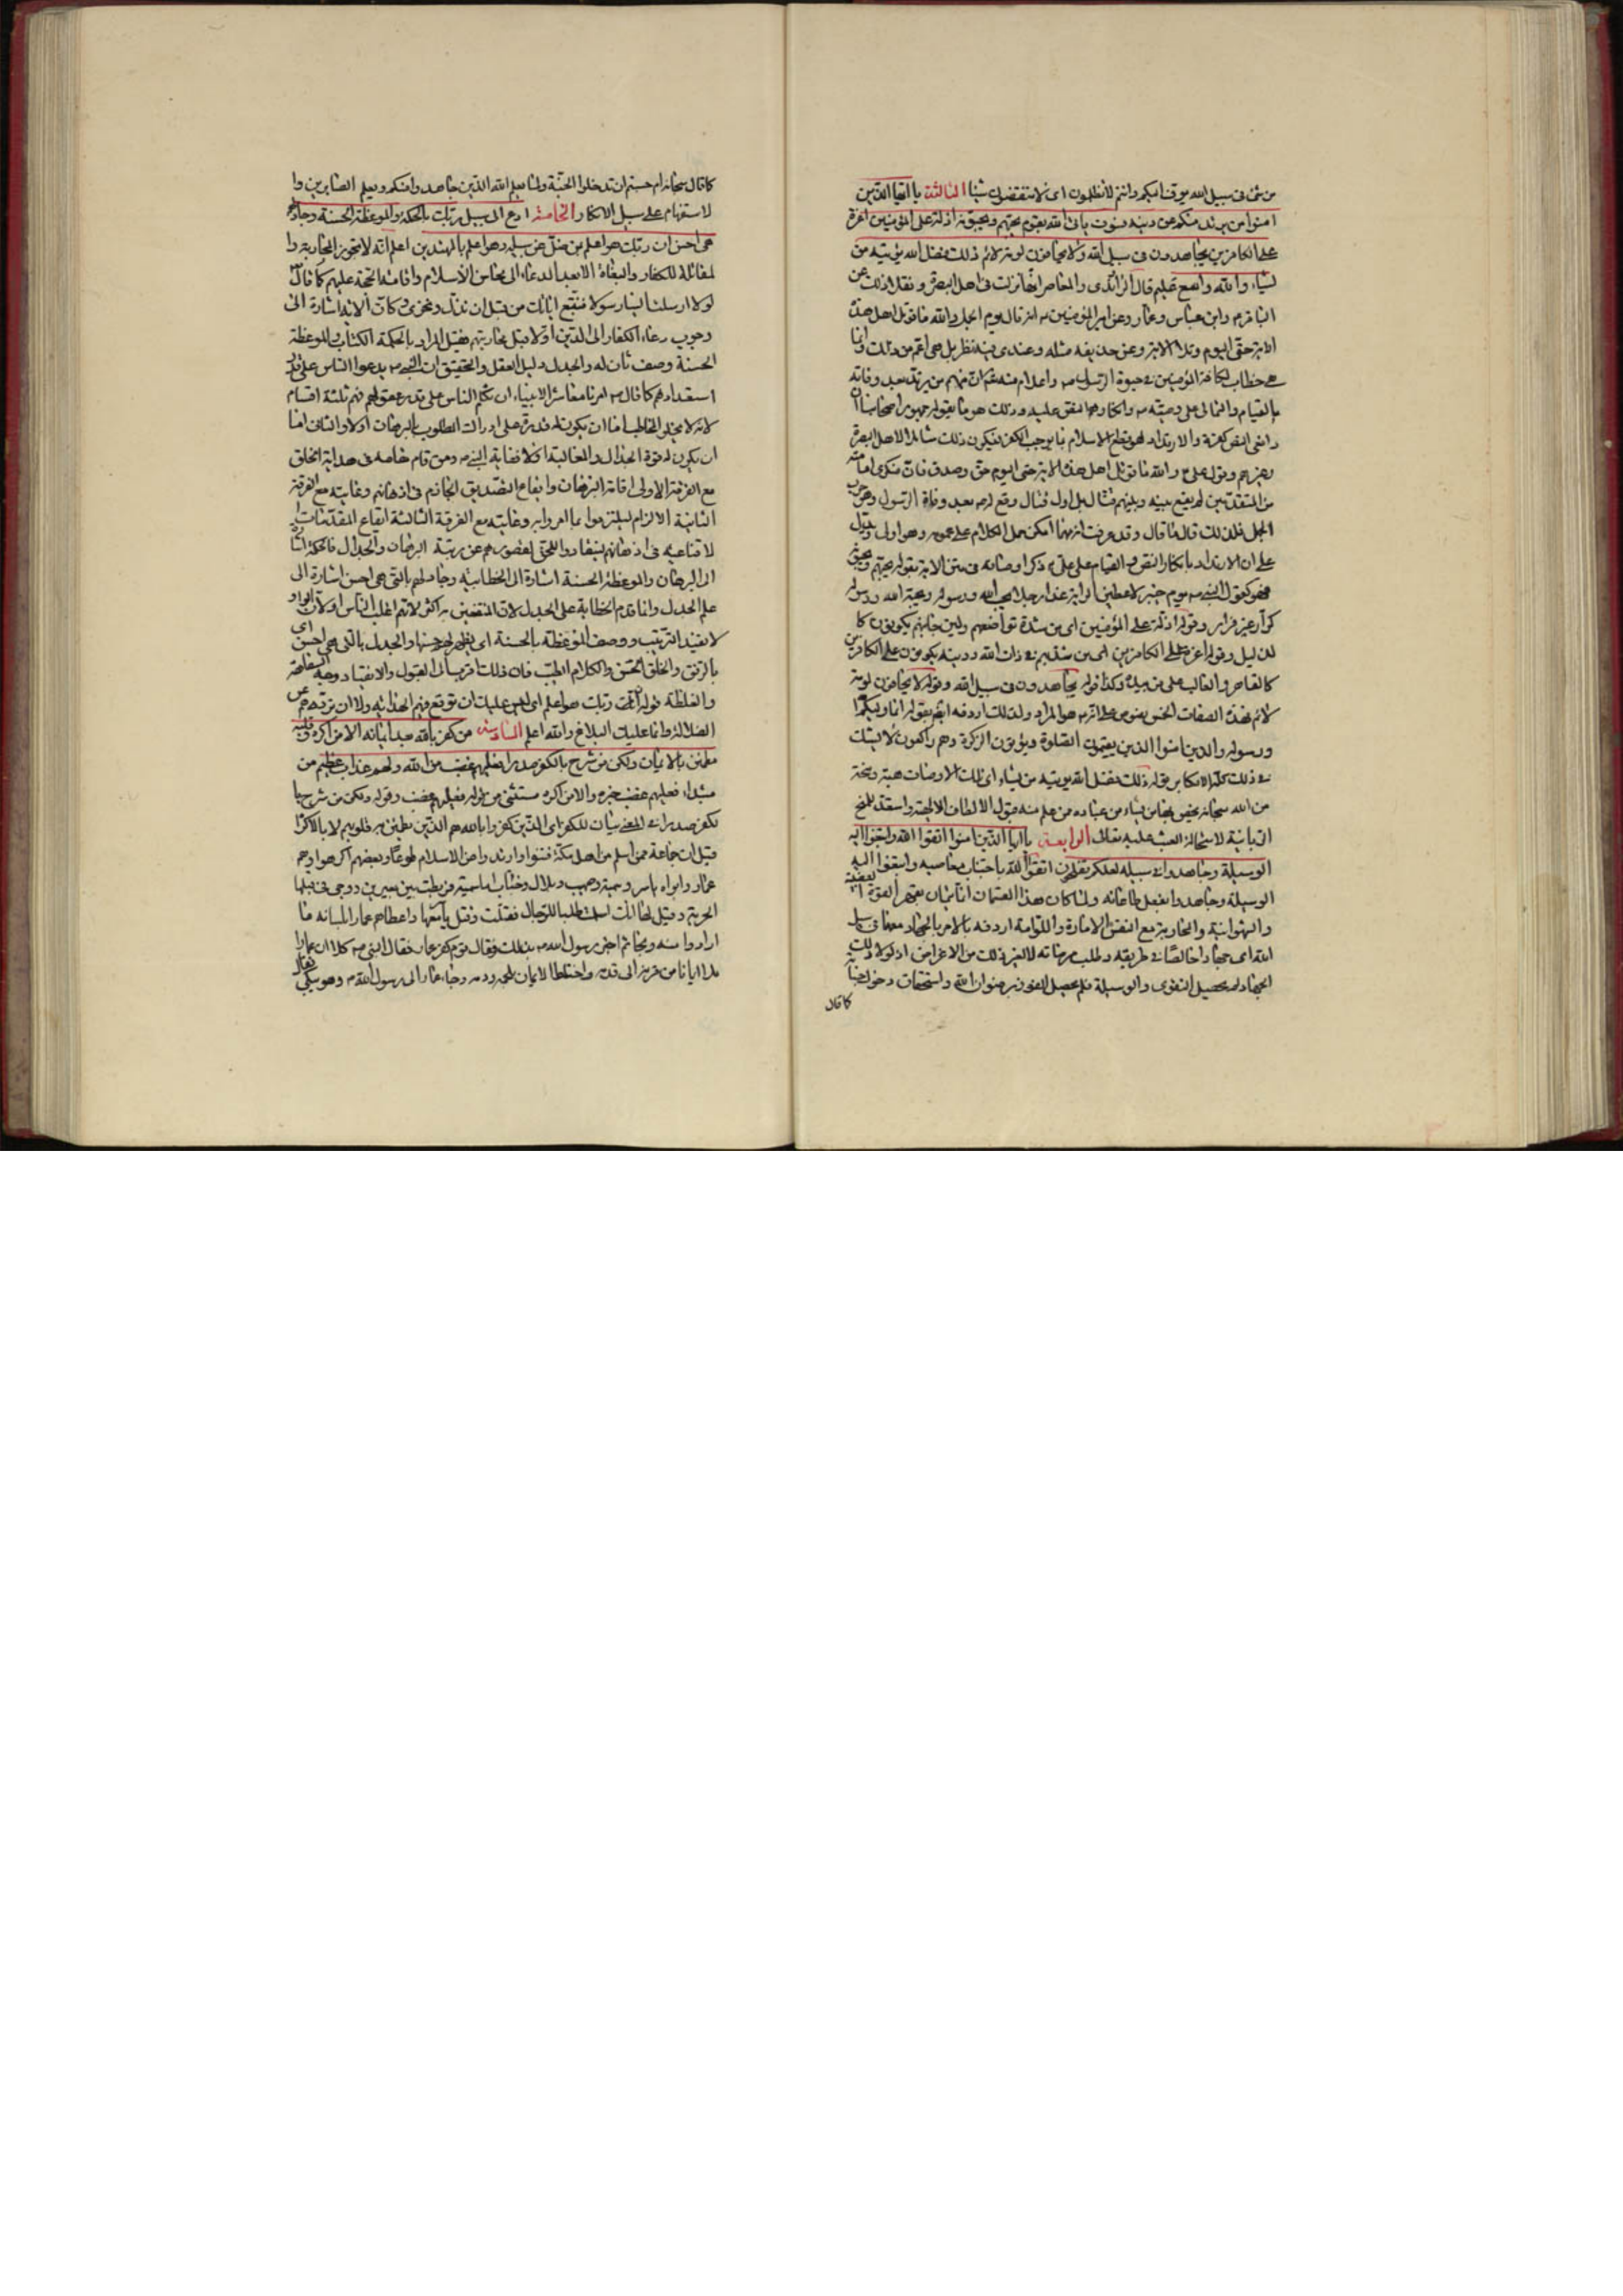 من شئ فى سبيل الله يوف اليكم وانتم لا تظلمون اى لا تنقضون شيئا الثالثة يا ايها الذين
امنوا من يرتد منكم عن دينه فسوف ياتى الله بقوم يحبهم ويحبونه اذلة على المؤمنين اعزة
على الكافرين يجاهدون فى سبيل الله ولا يخافون لومة لائم ذلك فضل الله يؤتيه من
يشاء والله واسع عليم قال الراوندى والمعاصر انها نزلت فى اهل البصرة ونقلا ذلك عن
الباقر م وابن عباس وعمار وعن امير المؤمنين م انه قال يوم الجمل والله ما قوتل اهل هذه
الاية حتى اليوم وتلا الاية وعن حذيفة مثله وعندى فيه نظر بل هى اعم من ذلك وانما
هى خطاب لكافة المؤمنين فى حيوة الرسول م واعلام منه ان منهم من يرتد بعد وفاته
بالقيام على وصيه م وانكار النص عليه وذلك هو ما يقوله جمهور اصحابنا ان
دافعى النص كفرة والارتداد هو قطع الاسلام بما يوجب الكفر فيكون ذلك شاملا لاهل البصرة
وغيرهم وقول على ع والله ما قوتل اهل هذه الاية حتى اليوم حق وصدق فان منكرى امامته
من المتقدمين لم يقع بينه وبينهم قتال بل اول قتال وقع له م بعد وفاة الرسول وهو حرب
الجمل فلذلك قال ما قال وقد عرفت انه مهما امكن حمل الكلام على عمومه وهو اولى ويدل
على ان الارتداد بانكار النص القيام على على م ذكر اوصافه فى متن الاية بقوله يحبهم ويحبونه
فهو كقول النبى م يوم خيبر لاعطين الراية غدا رجلا يحب الله ورسوله ويحبه الله ورسوله
كرار غير فرار وقوله اذلة على المؤمنين اى من شدة تواضعهم ولين جانبهم يكونون كا
لذليل وقوله اعزة على الكافرين اى من شدتهم فى ذات الله ودينه يكونون على الكافرين
كالقاهر والغالب على من وكذا قوله يجاهدون فى سبيل الله وقوله لا يخافون لومة
لائم فهذه الصفات الخمس نصوص على انه م هو المراد ولذلك اردفه ايضا بقوله انما وليكم الله
ورسوله والذين امنوا الذين يقيمون الصلوة ويؤتون الزكوة وهم راكعون لا يشك
فى ذلك الا مكابر قوله ذلك فضل الله يؤتيه من يشاء اى تلك الاوصاف هبة ومنحة
من الله سبحانه يخص بها من يشاء من عباده ممن علم منه قبول الالطاف الالهية واستعد للمنح
الربانية لاستحالة العبث عليه تعالى الرابعة يا ايها الذين امنوا اتقوا الله وابتغوا اليه
الوسيلة وجاهدوا فى سبيله لعلكم تفلحون اتقوا الله باجتناب معاصيه وابتغوا اليه
الوسيلة وجاهدوا بفعل طاعاته ولما كان هذا القسمان انما يتمان بقهر القوة الغضبية
والشهوانية والمحاربة مع النفس الامارة واللوامة اردفه بالامر بالجهاد معها فى سبيل
الله اى جهادا خالصا فى طريقه وطلب مرضاته لا لغير ذلك من الاغراض اذ لولا ذلك
الجهاد لم يحصل التقوى والوسيلة فلم يحصل الفوز برضوان الله واستحقاق دخول جنانه
كما قال
كما قال سبحانه ام حسبتم ان تدخلوا الجنة ولما يعلم الله الذين جاهدوا منكم ويعلم الصابرين وا
لاستفهام على سبيل الانكار الخامسة ادع الى سبيل ربك بالحكمة والموعظة الحسنة وجادلهم بالتى
هى احسن ان ربك هو اعلم بمن ضل عن سبيله وهو اعلم بالمهتدين اعلم انه لا يجوز المحاربة وا
لمقاتلة للكفار والبغاة الا بعد الدعاء الى محاسن الاسلام واقامة الحجة عليهم كما قال
لولا ارسلت الينا رسولا فنتبع اياتك من قبل ان نذل ونخزى وكانت الاية اشارة الى
وجوب دعاء الكفار الى الدين اولا قبل محاربتهم فقيل المراد بالحكمة الكتاب والموعظة
الحسنة وصف ثان له والجدل دليل العقل والتحقيق ان النبى م يدعوا الناس على قدر
استعدادهم كما قال م امرنا معاشر الانبياء ان نكلم الناس على قدر عقولهم فهم ثلثة اقسام
لانه لا يخلو المخاطب اما ان يكون له قدرة على ادراك المطلوب بالبرهان اولا والثانى اما
ان يكون له قوة الجدال والمغالبة اولا فغاية النبى م ومن قام مقامه فى هداية الخلق
مع الفرقة الاولى اقامة البرهان وايقاع التصديق الجازم فى اذهانهم وغايته مع الفرقة
الثانية الالزام ليلتزموا بما امروا به وغايته مع الفرقة الثالثة ايقاع المقدمات ا
لاقناعية فى اذهانهم لينقادوا للحق لقصورهم عن رتبة البرهان والجدال فالحكمة اشارة
الى البرهان والموعظة الحسنة اشارة الى الخطابة وجادلهم بالتى هى احسن اشارة الى
علم الجدل وانما قدم الخطابة على الجدل لان المنتفعين به اكثر لانهم اغلب الناس او لان الواو
لا تفيد الترتيب ووصف الموعظة بالحسنة اى يظهر لهم حسنها والجدل بالتى هى احسن اى
بالرفق والخلق الحسن والكلام الطيب فان ذلك اقرب الى القبول والانقياد
والغلظة قوله ان ربك هو اعلم اى ليس عليك ان توقع فيهم الهداية ولا ان تردهم عن
الضلالة وانما عليك البلاغ والله اعلم السادسة من كفر بالله من بعد ايمانه الا من اكره وقلبه
مطمئن بالايمان ولكن من شرح بالكفر صدرا فعليهم غضب من الله ولهم عذاب عظيم من
مبتداء فعليهم غضب خبره والا من اكره مستثنى من قوله فعليهم غضب وقوله ولكن من شرح با
لكفر صدرا بيان للكفر اى الذين كفروا بالله هم الذين تطمئن به قلوبهم لا بالاكراه
قيل ان جماعة ممن اسلم من اهل مكة فتنوا وارتدوا عن الاسلام طوعا وبعضهم اكرهوا وهم
عمار وابواه ياسر وسمية وصهيب وبلال وخباب اما سمية فربطت بين بعيرين ووجئ فى قبلها
الحربة وقيل لها انك اسلمت طلبا للرجال فقتلت وقتل ياسر معها واعطاهم عمار بلسانه ما
ارادوا منه ونجا ثم اخبر رسول الله م بذلك فقال قوم كفر عمار فقال النبى م كلا ان عمارا
ملا ايمانا من قرنه الى قدمه واختلط الايمان بلحمه ودمه وجاء عمار الى رسول الله م وهو يبكى فقال